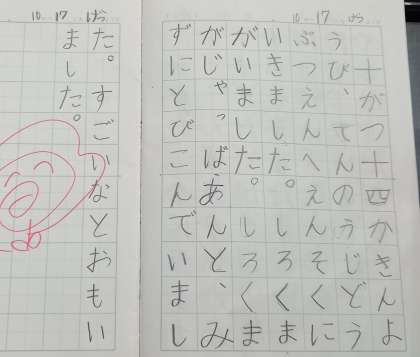 10 17
十がつ十四かきんよ
うび、てんのうじどう
ぶつえんへえんそくに
いきました。しろくま
がいました。しろくま
がじゃっばあんと、み
ずにとびこんでいまし
10 17
た。すごいなとおもい
ました。